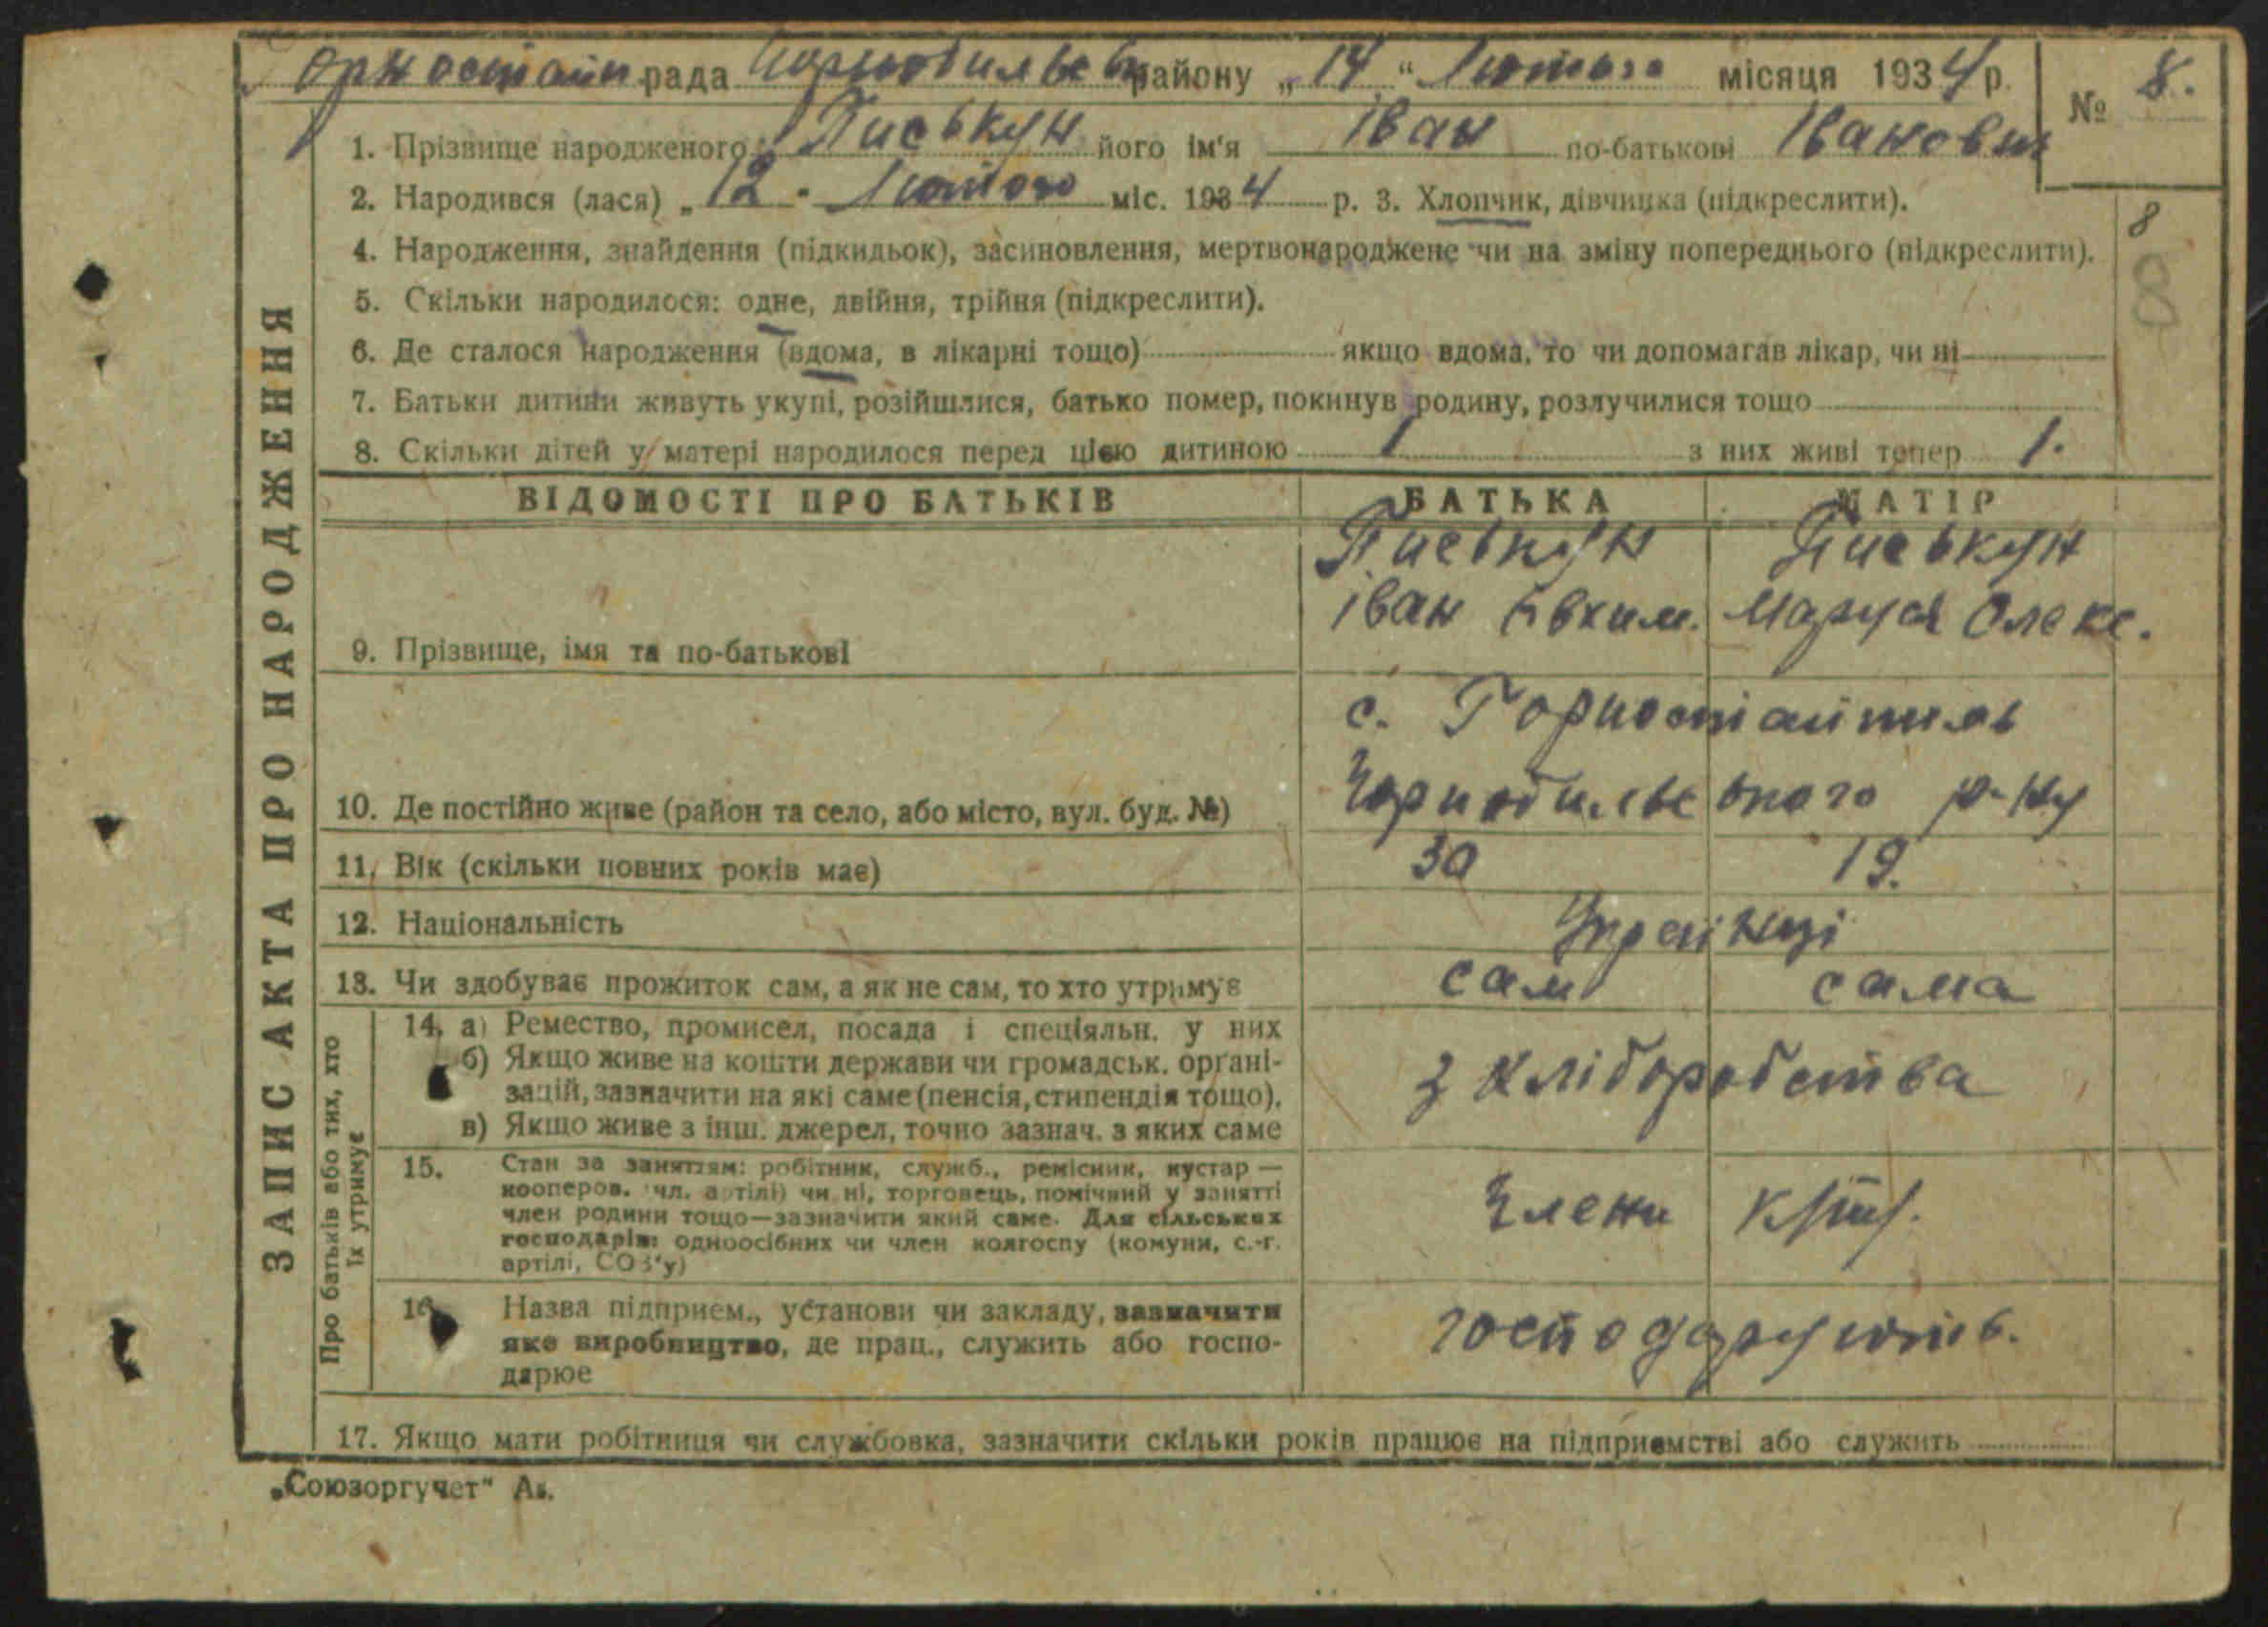 Горностайп рада Чорнобильськ району „ 14 “ Лютого місяця 1934 р.
№ 8.
1. Прізвище народженого Писькун його ім'я Іван по-батькові Іванович
2. Народився (лася) „ 12 " Лютого міс. 1934 р. 3. Хлопчик, дівчинка (підкреслити).
8
8
4. Народження, знайдення (підкидьок), засиновлення, мертвонароджене чи на зміну попереднього (підкреслити).
5. Скільки народилося: одне, двійня, трійня (підкреслити).
6. Де сталося народження (вдома, в лікарні тощо) якщо вдома, то чи допомагав лікар, чи ні
7. Батьки дитини живуть укупі, розійшлися, батько помер, покинув родину, розлучилися тощо
8. Скільки дітей у матері народилося перед цією дитиною 1 з них живі тепер 1.
ЗАПИС АКТА ПРО НАРОДЖЕННЯ
ВІДОМОСТІ ПРО БАТЬКІВ БАТЬКА МАТІР
Писькун Писькун
Іван Євхим. Маруся Олекс.
9. Прізвище, імя та по-батькові
с. Горностайпиль
Чорнобильського р-ну
10. Де постійно живе (район та село, або місто, вул. буд. №)
11. Вік (скільки повних років має) 30 19.
12. Національність Українці
13. Чи здобуває прожиток сам, а як не сам, то хто утримує сам сама
Про батьків або тих, хто
їх утримує
14. а) Ремество, промисел, посада і спеціяльн. у них
б) Якщо живе на кошти держави чи громадськ. органі-
зацій, зазначити на які саме (пенсія, стипендія тощо).
в) Якщо живе з інш. джерел, точно зазнач. з яких саме
з хліборобства
15. Стан за заняттям: робітник, служб., ремісник, кустар —
кооперов. (чл. артілі) чи ні, торговець, помічний у занятті
член родини тощо—зазначити який саме. Для сільських
господарів: одноосібних чи член колгоспу (комуни, с.-г.
артілі, СОЗ'у)
Члени
16. Назва підприєм., установи чи закладу, зазначити
яке виробництво, де прац., служить або госпо-
дарює
господарують.
17. Якщо мати робітниця чи службовка, зазначити скільки років працює на підприємстві або служить
„Союзоргучет"